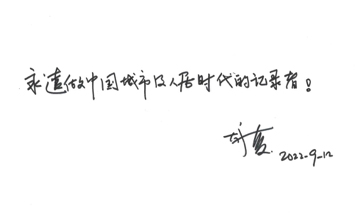 永远做中国城市及人居时代的记录者！
2022-9-12